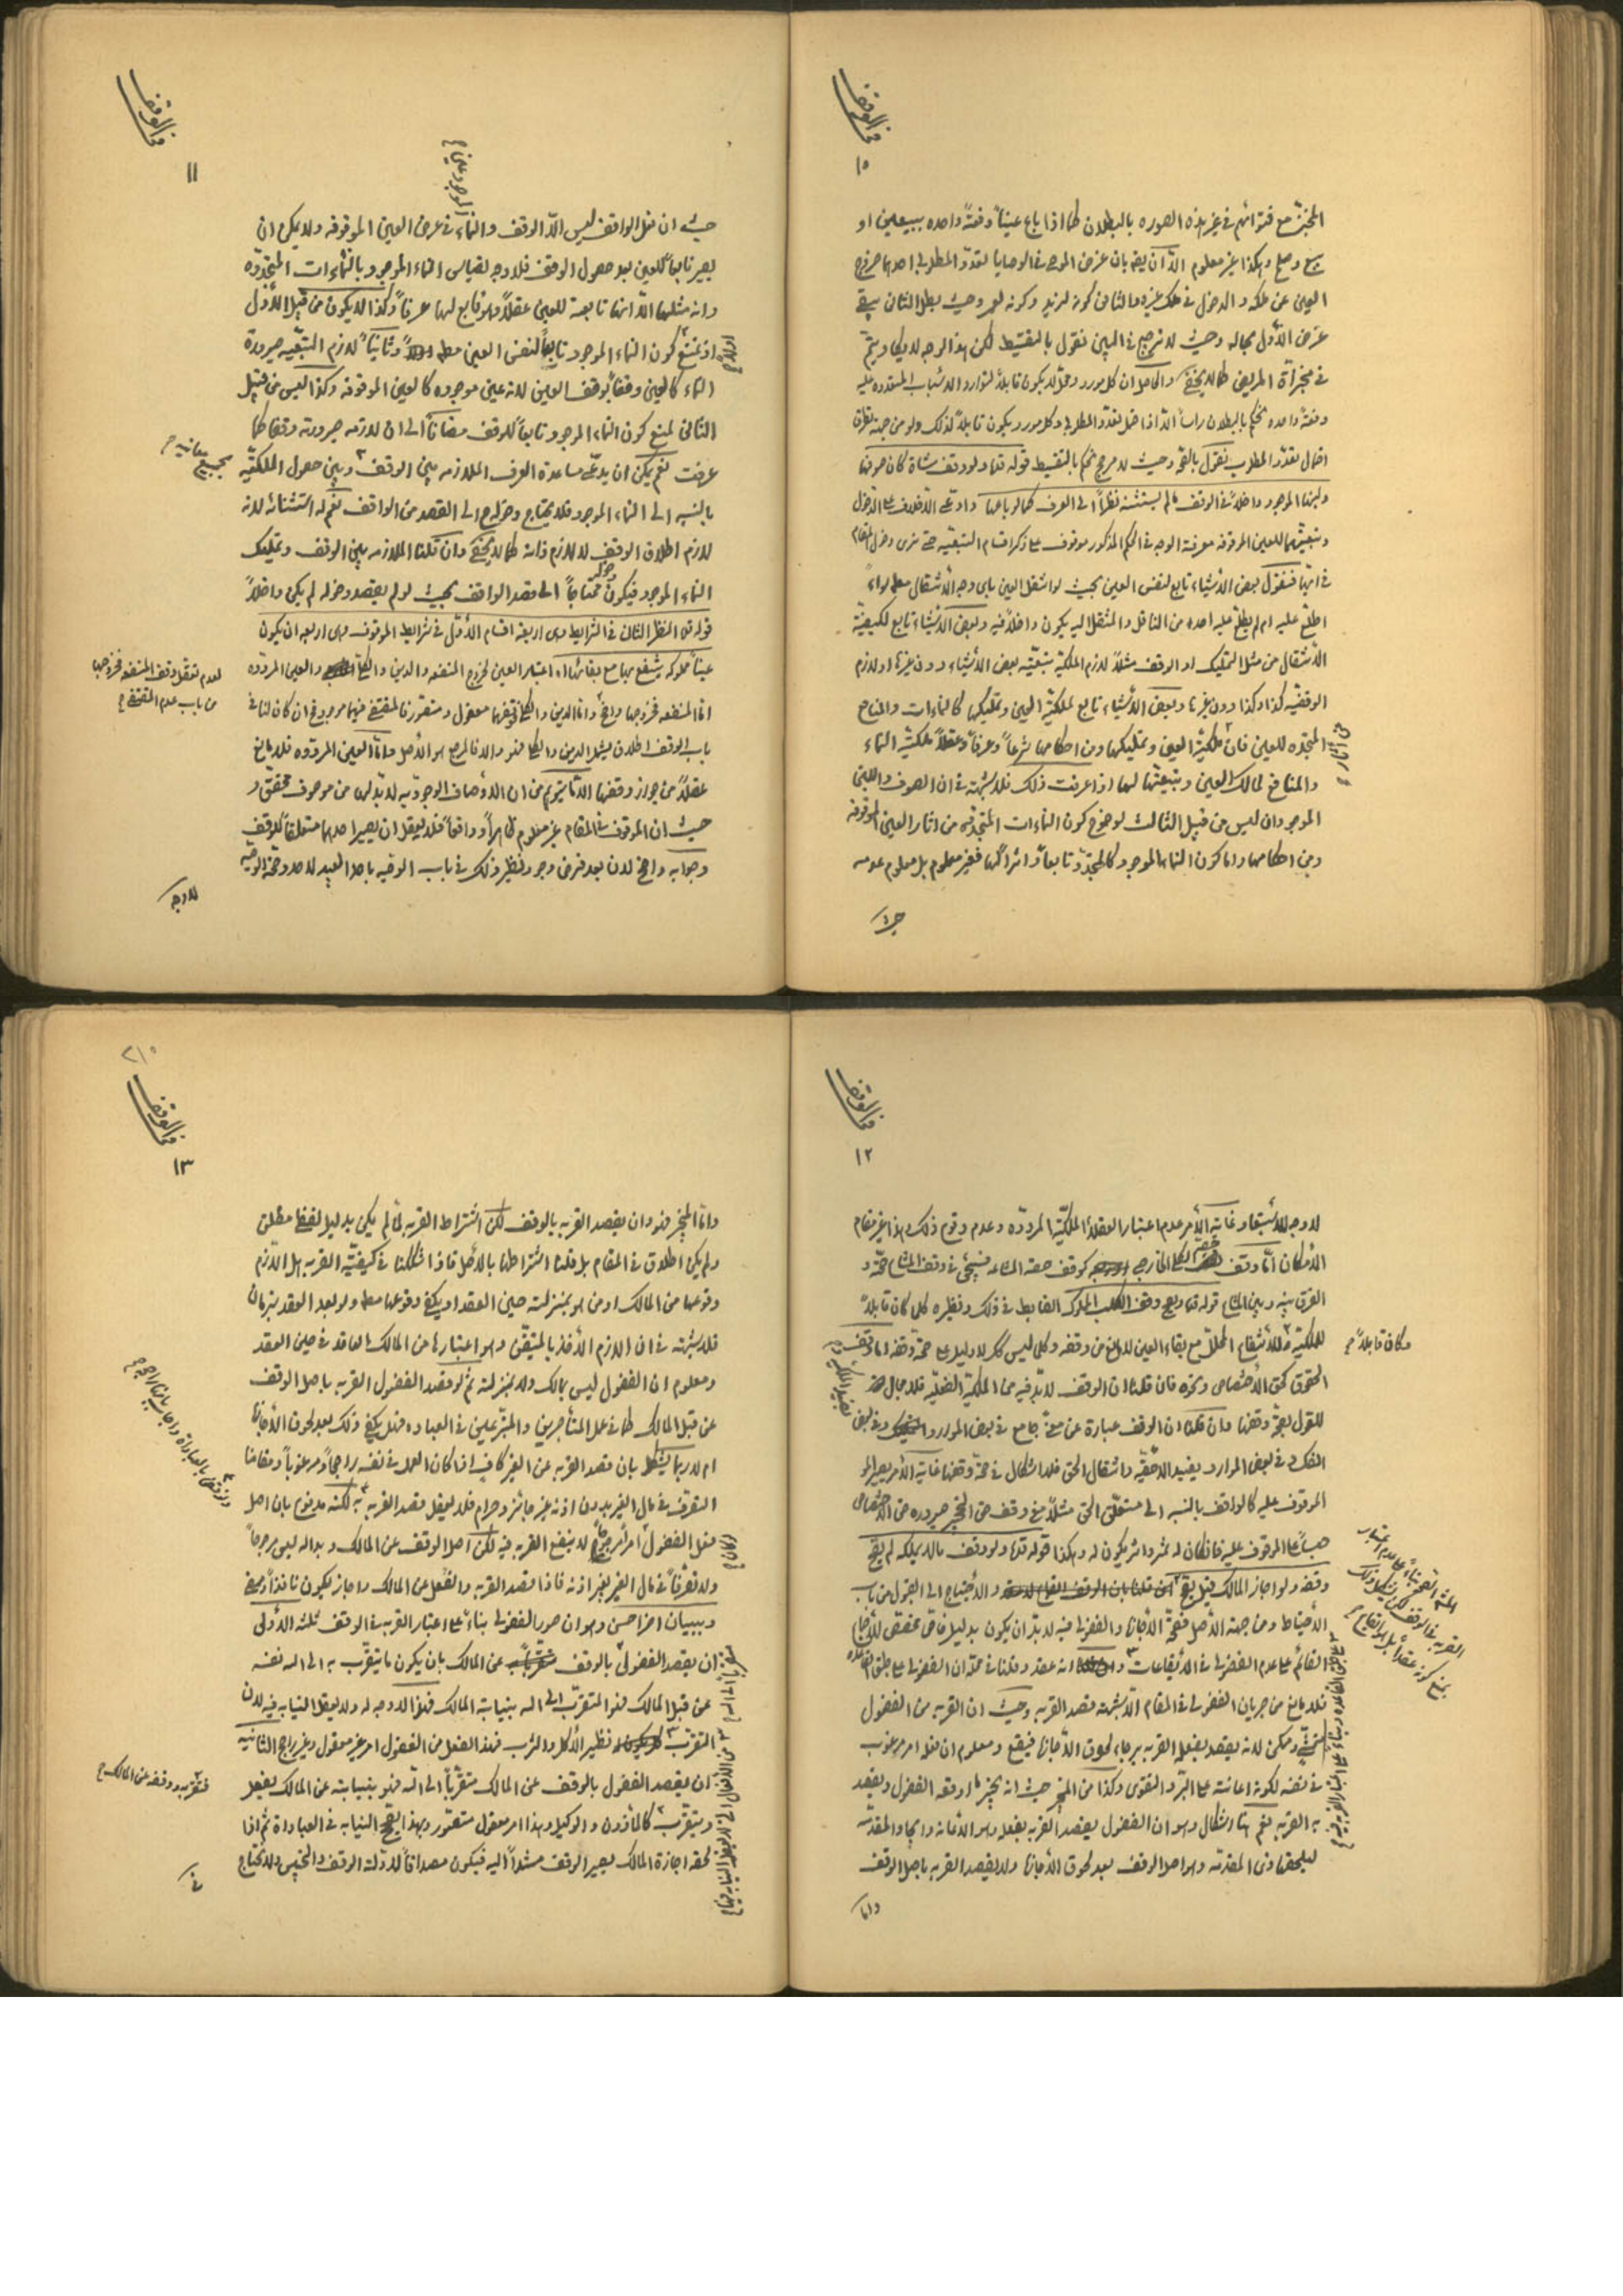 فی الوقف
١٠
المنجز مع فتوائهم فی غیر هذه الصوره بالبطلان کما اذا باع عیناً دفعةً واحده ببیعین او
بیع وصلح وهکذا غیر معلوم الّا ان یقه بان غرض الموصی فی الوصایا تعدّد المطلوب احدهما خروج
العین عن ملکه والدخول فی ملک غیره والثانی کونه لزید وکونه لعمرو وحیث بطل الثانی یبقی
غرض الأول بحاله وحیث لا ترجیح فی البین نقول بالتقسیط لکن هذا الوجه لا یکاد یتم
فی منجزات المریض کما لا یخفی والحاصل ان کل مورد ومحل لا یکون قابلاً لتوارد الاسباب المتعدده علیه
دفعةً واحده نحکم بالبطلان راساً الّا اذا احتمل تعدد المطلوب وکل مورد یکون قابلاً لذلک ولو من جهة تطرق
احتمال تعدّد المطلوب نقول بالصحّة وحیث لا مرجح نحکم بالتقسیط قوله قده ولو وقف شاة کان صوفها
ولبنها الموجود داخلاً فی الوقف ما لم یستثنه نظراً الی العرف کما لو باعها وادعی الاخلاف علی الدخول
وتبعیتهما للعین الموقوفه معرفة الوجه فی الحکم المذکور موقوف علی ذکر اقسام التبعیه حتی نری دخل المقام
فی ایّها فنقول بعض الأشیاء تابع لنفس العین بحیث لو انتقل العین بای وجه الأنتقال معلوماً
اطلع علیه ام لم یطلع علیه احده من الناقل والمنتقل الیه یکون داخلاً فیه وبعض الأشیاء تابع لکیفیّة
الأنتقال من مثل التملیک او الوقف مثلاً لازم الملکیّة تبعیّه بعض الأشیاء دون غیرها ولازم
الوقفیّه کذا وکذا دون غیرها وبعض الأشیاء تابع لملکیّة العین وتملیکها کالنماءات والمنافع
المتجدّده للعین فان ملکیّة العین وتملیکها من احکامها شرعاً وعرفاً وعقلاً ملکیّة النماء
والمنافع لمالک العین وتبعیّتها لها اذا عرفت ذلک فلا شبهة فی ان الصوف واللبن
الموجودان لیس من قبیل الثالث لوضوح کون النماءات المتجدّده من اثار العین الموقوفه
ومن احکامها واما کون النماء الموجود کالمتجدّد تابعاً واثراً لها فغیر معلوم بل معلوم عدمه
حیث
فی الوقف
١١
حیث ان فعل الواقف لیس الّا الوقف والنماء فی عرض العین الموقوفه ولا یمکن ان
یصیر تابعاً للعین بعد حصول الوقف فلا وجه لقیاس النماء الموجود بالنماءات المتجدّده
وانه مثلها الّا انها تابعة للعین عقلاً وهو تابع لها عرفاً وکذا لا یکون من قبیل الأول
اذ نمنع کون النماء الموجود تابعاً لنفس العین وثانیاً لازم التبعّیه صیرورة
النماء کالعین وقفاً بوقف العین لانه عین موجوده کالعین الموقوفه وکذا لیس من قبیل
الثانی لمنع کون النماء الموجود تابعاً للوقف مضافاً الی ان لازمه صیرورته وقفاً کما
عرفت نعم یمکن ان یدعی مساعدة العرف الملازمه بین الوقف وبین حصول الملکیّه
بالنسبه الی النماء الموجود فلا یحتاج دخوله الی القصد من الواقف نعم له استثنائه لانه
لازم اطلاق الوقف لا لازم ذاته کما لا یخفی وان قلنا الملازمه بین الوقف وتملیک
النماء الموجود فیکون محتاجاً الی قصد الواقف بحیث لو لم یقصد دخوله لم یکن داخلاً
قوله قده النظر الثانی فی الشرایط وهی اربعة اقسام الأول فی شرایط الموقوف وهی اربعه ان یکون
عیناً مملوکه ینتفع بها مع بقائها اه اعتبار العین لخروج المنفعه والدین والکلی والعین المردّده
اما المنفعه فخروجها واضح واما الدین والکلی فوقفهما معقول ومتصوّر فالمقتضی فیهما موجود فان کان لنا فی
باب الوقف اطلاق یشمل الدین والکلی فهو والا فالمرجع هو الأصل واما العین المردّده فلا مانع
عقلاً من جواز وقفها الّا ما یتوهم من ان الأوصاف الوجودیه لا بدّ لها من موصوف محقق و
حیث ان الموقوف فی المقام غیر معلوم ظاهراً وواقعاً فلا یعقل ان یصیر احدهما متعلقاً للوقف
وجوابه واضح لان بعد فرض وجود نظیر ذلک فی باب الوصیه باحد العبید
لا وجه
لعدم تعقل وقف المنفعه فخروجها
من باب عدم المقتضی
فی الوقف
١٢
لا وجه للأستبعاد غایة الأمر عدم اعتبار العقلاء الملکیّه المردّده وعدم وقوع ذلک وهذا غیر مقام
الأمکان امّا وقف الکلی الخارجی کوقف حصه المشاعه فسیجئ فی وقف المشاع صحته و
الفرق بینه وبین المشاع قوله قده ویصح وقف الکلب المملوک الضابط فی ذلک ونظیره کلما کان قابلاً
للملکیّه وللأنتفاع المحلل مع بقاء العین لا مانع من وقفه وکل لیس کک لا دلیل علی صحّة وقفه اما وقف
الحقوق کحق الأختصاص ونحوه فان قلنا ان الوقف لا بدّ فیه من الملکیّة الفعلیّه فلا مجال
للقول بصحّة وقفها وان قلنا ان الوقف عبارة عن معنی جامع فی بعض الموارد وفی بعض
الفک وفی بعض الموارد یفید الأحقیّه وانتقال الحق فلا اشکال فی صحّة وقفها غایة الأمر یصیر
الموقوف علیه کالواقف بالنسبه الی متعلّق الحق مثلاً معنی وقف حق التحجیر صیرورة حق الأختصاص
حبساً علی الموقوف علیه فان کان له ثمر واثر یکون له وهکذا قوله قده ولو وقف ما لا یملکه لم یصح
وقفه ولو اجاز المالک قیل یصح والأحتیاج الی القبول من باب
الأحتیاط ومن جهة الأصل فصحّة الأجازه والفضولی فیه لا بدّ ان یکون بدلیل خاص مخصص للأجماع
القائم علی عدم الفضولی فی الأیقاعات انه عقد وقلنا فی محلّه ان الفضولی علی طبق القاعده
فلا مانع من جریان الفضولی فی المقام الّا شبهة قصد القربه وحیث ان القربه من الفضولی
متمشّی وممکن لانه یقصد بفعله القربه برجاء لحوق الأجازه فیقع ومعلوم ان فعله امر مرغوب
فی نفسه لکونه اعانة علی البّر والتقوی وکذا من المجیز حیث انه یجیز ما اوقعه الفضولی ویقصد
به القربه نعم هنا اشکال وهو ان الفضولی یقصد القربه بفعله وهو الأعانه وایجاد المقدّمه
لیلحقها ذی المقدّمه وهو اصل الوقف بعد لحوق الأجازه ولا یقصد القربه باصل الوقف
واما
وکان قابلاً
فی الوقف
١٣
٢١٠
وامّا المجیز فهو وان یقصد القربه بالوقف لکن اشتراط القربه لمّا لم یکن بدلیل لفظی مطلق
ولم یکن اطلاق فی المقام بل قلنا اشتراطها بالأصل فاذا شککنا فی کیفیّة القربه هل اللازم
وقوعها من المالک او من هو بمنزلته حین العقد او یکفی وقوعها معه ولو بعد العقد بزمان
فلا شبهة فی ان اللازم الأخذ بالمتیقّن وهو اعتبارها من المالک العاقد فی حین العقد
ومعلوم ان الفضولی لیس بمالک ولا بمنزلته ثم لو قصد الفضولی القربه باصل الوقف
عن قبل المالک کما فی عمل المتأجرین والمتبّرعین فی العباده فهل یکفی ذلک بعد لحوق الأجازه
ام لا ربما یشکل بان قصد القربه عن الغیر کاف اذا کان العمل فی نفسه راجحاً ومرغوباً ومقامنا
التصرف فی مال الغیر بدون اذنه غیر جائز وحرام فلا یعقل قصد القربه به لکنه مدفوع بان اصل
فعل الفضولی امراً مرجوحاً لا ینفع القربه فیه لکن اصل الوقف عن المالک وبداله لیس مرجوحاً
ولا تصرفاً فی مال الغیر بغیر اذنه فاذا قصد القربه والفعل عن المالک واجاز یکون نافذاً
وببیان اخر احسن وهو ان صور الفضولی بناءً علی اعتبار القربه فی الوقف ثلثه الأولی
ان یقصد الفضولی بالوقف عن المالک بان یکون ما یتقرّب به الی الله نفسه
عن قبل المالک فهو المتقرّب الی الله بنیابة المالک فهذا لا وجه له ولا یعقل النیابه فیه لان
التقرّب نظیر الأکل والشرب فهذا الفعل من الفضولی امر غیر معقول وغیر راجح الثانیه
ان یقصد الفضولی بالوقف عن المالک متقرّباً الی الله فهو بنیابته عن المالک یفعل
ویتقرّب کالمأذون والوکیل وهذا امر معقول متصّور وبهذا یصحّ النیابه فی العباداة ثم اذا
لحقه اجازة المالک یصیر الوقف مسنداً الیه فیکون مصداقاً لأدّلة الوقف والحبس ولا یحتاج
فی
فتقرّبه ووقفه عن المالک